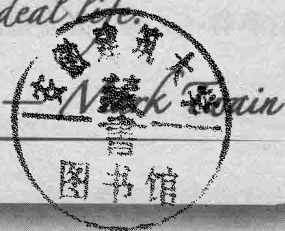 deal life.
— Mark Twain
建筑
书
图书馆